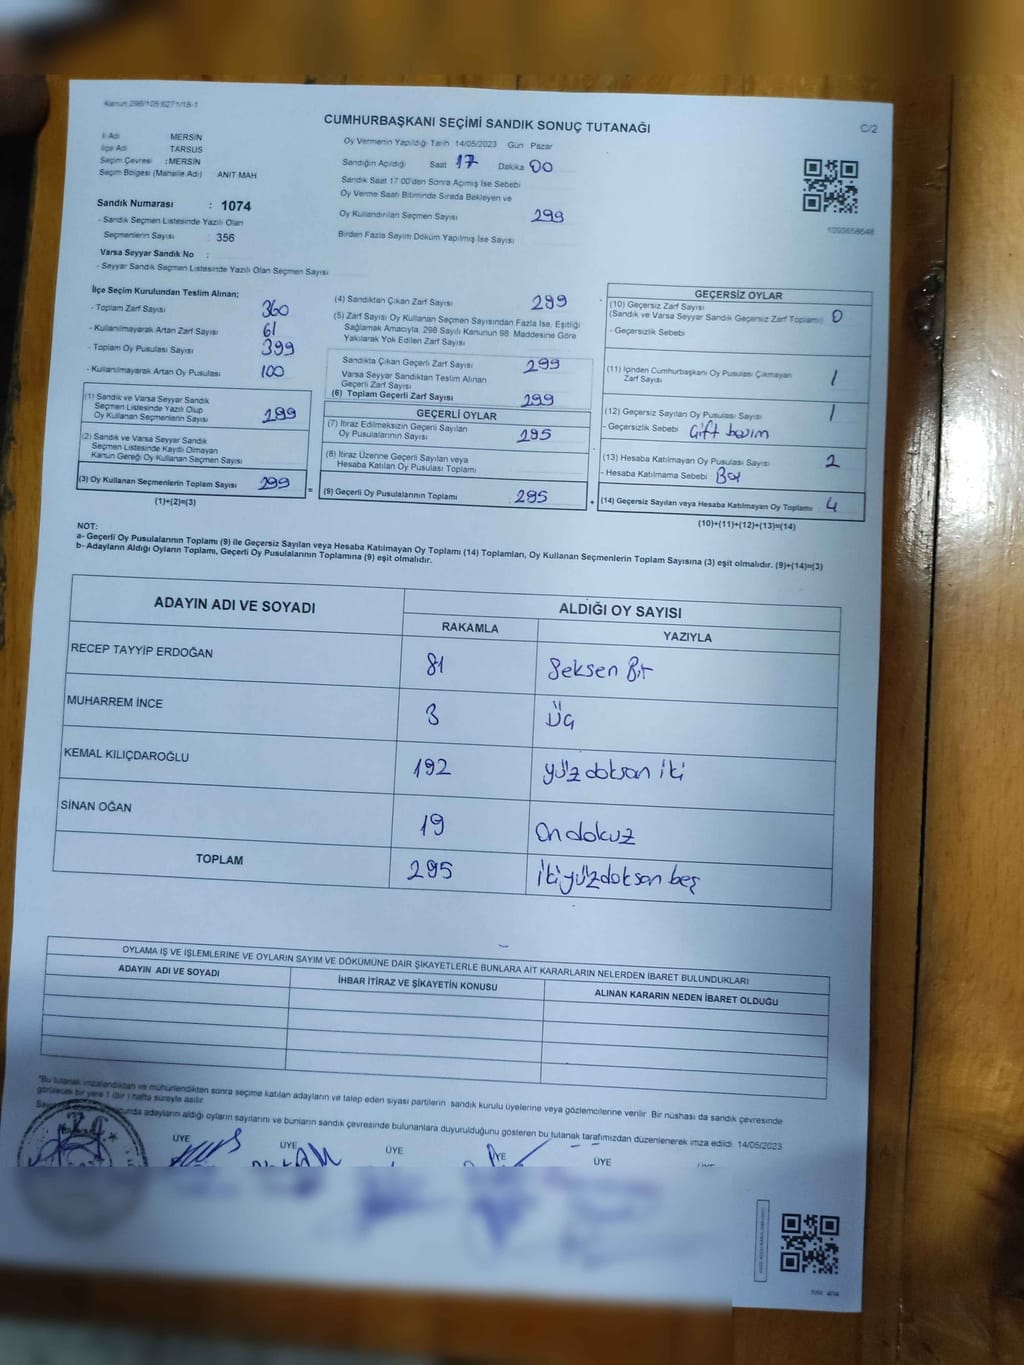 Kanun:298/105:6271/18-1
CUMHURBAŞKANI SEÇİMİ SANDIK SONUÇ TUTANAĞI
C/2
İl Adı MERSİN
İlçe Adı TARSUS
Seçim Çevresi :MERSİN
Seçim Bölgesi (Mahalle Adı) ANIT MAH
Oy Vermenin Yapıldığı Tarih 14/05/2023 Gün Pazar
Sandığın Açıldığı Saat 17 Dakika 00
Sandık Saat 17:00'den Sonra Açımış İse Sebebi
Oy Verme Saati Bitiminde Sırada Bekleyen ve
Oy Kullandırılan Seçmen Sayısı 299
Birden Fazla Sayım Döküm Yapılmış İse Sayısı
Sandık Numarası : 1074
- Sandık Seçmen Listesinde Yazılı Olan
Seçmenlerin Sayısı : 356
Varsa Seyyar Sandık No :
- Seyyar Sandık Seçmen Listesinde Yazılı Olan Seçmen Sayısı
İlçe Seçim Kurulundan Teslim Alınan;
- Toplam Zarf Sayısı 360
- Kullanılmayarak Artan Zarf Sayısı 61
- Toplam Oy Pusulası Sayısı 399
- Kullanılmayarak Artan Oy Pusulası 100
(1) Sandık ve Varsa Seyyar Sandık
Seçmen Listesinde Yazılı Olup
Oy Kullanan Seçmenlerin Sayısı 299
(2) Sandık ve Varsa Seyyar Sandık
Seçmen Listesinde Kayıtlı Olmayan
Kanun Gereği Oy Kullanan Seçmen Sayısı
(3) Oy Kullanan Seçmenlerin Toplam Sayısı 299
(1)+(2)=(3)
=
(4) Sandıktan Çıkan Zarf Sayısı 299
(5) Zarf Sayısı Oy Kullanan Seçmen Sayısından Fazla İse, Eşitliği
Sağlamak Amacıyla, 298 Sayılı Kanunun 98. Maddesine Göre
Yakılarak Yok Edilen Zarf Sayısı
Sandıkta Çıkan Geçerli Zarf Sayısı 299
Varsa Seyyar Sandıktan Teslim Alınan
Geçerli Zarf Sayısı
(6) Toplam Geçerli Zarf Sayısı 299
GEÇERLİ OYLAR
(7) İtiraz Edilmeksizin Geçerli Sayılan
Oy Pusulalarının Sayısı 295
(8) İtiraz Üzerine Geçerli Sayılan veya
Hesaba Katılan Oy Pusulası Toplamı
(9) Geçerli Oy Pusulalarının Toplamı 295
+
GEÇERSİZ OYLAR
(10) Geçersiz Zarf Sayısı
(Sandık ve Varsa Seyyar Sandık Geçersiz Zarf Toplamı) 0
- Geçersizlik Sebebi
(11) İçinden Cumhurbaşkanı Oy Pusulası Çıkmayan
Zarf Sayısı 1
(12) Geçersiz Sayılan Oy Pusulası Sayısı 1
- Geçersizlik Sebebi Çift basım
(13) Hesaba Katılmayan Oy Pusulası Sayısı 2
- Hesaba Katılmama Sebebi Boş
(14) Geçersiz Sayılan veya Hesaba Katılmayan Oy Toplamı 4
(10)+(11)+(12)+(13)=(14)
NOT:
a- Geçerli Oy Pusulalarının Toplamı (9) ile Geçersiz Sayılan veya Hesaba Katılmayan Oy Toplamı (14) Toplamları, Oy Kullanan Seçmenlerin Toplam Sayısına (3) eşit olmalıdır. (9)+(14)=(3)
b- Adayların Aldığı Oyların Toplamı, Geçerli Oy Pusulalarının Toplamına (9) eşit olmalıdır.
ADAYIN ADI VE SOYADI
ALDIĞI OY SAYISI
RAKAMLA YAZIYLA
RECEP TAYYİP ERDOĞAN 81 Seksen Bir
MUHARREM İNCE 3 Üç
KEMAL KILIÇDAROĞLU 192 yüz doksan iki
SİNAN OĞAN 19 On dokuz
TOPLAM 295 İkiyüzdoksan beş
OYLAMA İŞ VE İŞLEMLERİNE VE OYLARIN SAYIM VE DÖKÜMÜNE DAİR ŞİKAYETLERLE BUNLARA AİT KARARLARIN NELERDEN İBARET BULUNDUKLARI
ADAYIN ADI VE SOYADI İHBAR İTİRAZ VE ŞİKAYETİN KONUSU ALINAN KARARIN NEDEN İBARET OLDUĞU
"Bu tutanak imzalandıktan ve mühürlendikten sonra seçime katılan adayların ve talep eden siyasi partilerin sandık kurulu üyelerine veya gözlemcilerine verilir. Bir nüshası da sandık çevresinde
görülecek bir yere 1 (bir) hafta süreyle asılır.
adayların aldığı oyların sayılarını ve bunların sandık çevresinde bulunanlara duyurulduğunu gösteren bu tutanak tarafımızdan düzenlenerek imza edildi. 14/05/2023
ÜYE ÜYE ÜYE ÜYE ÜYE